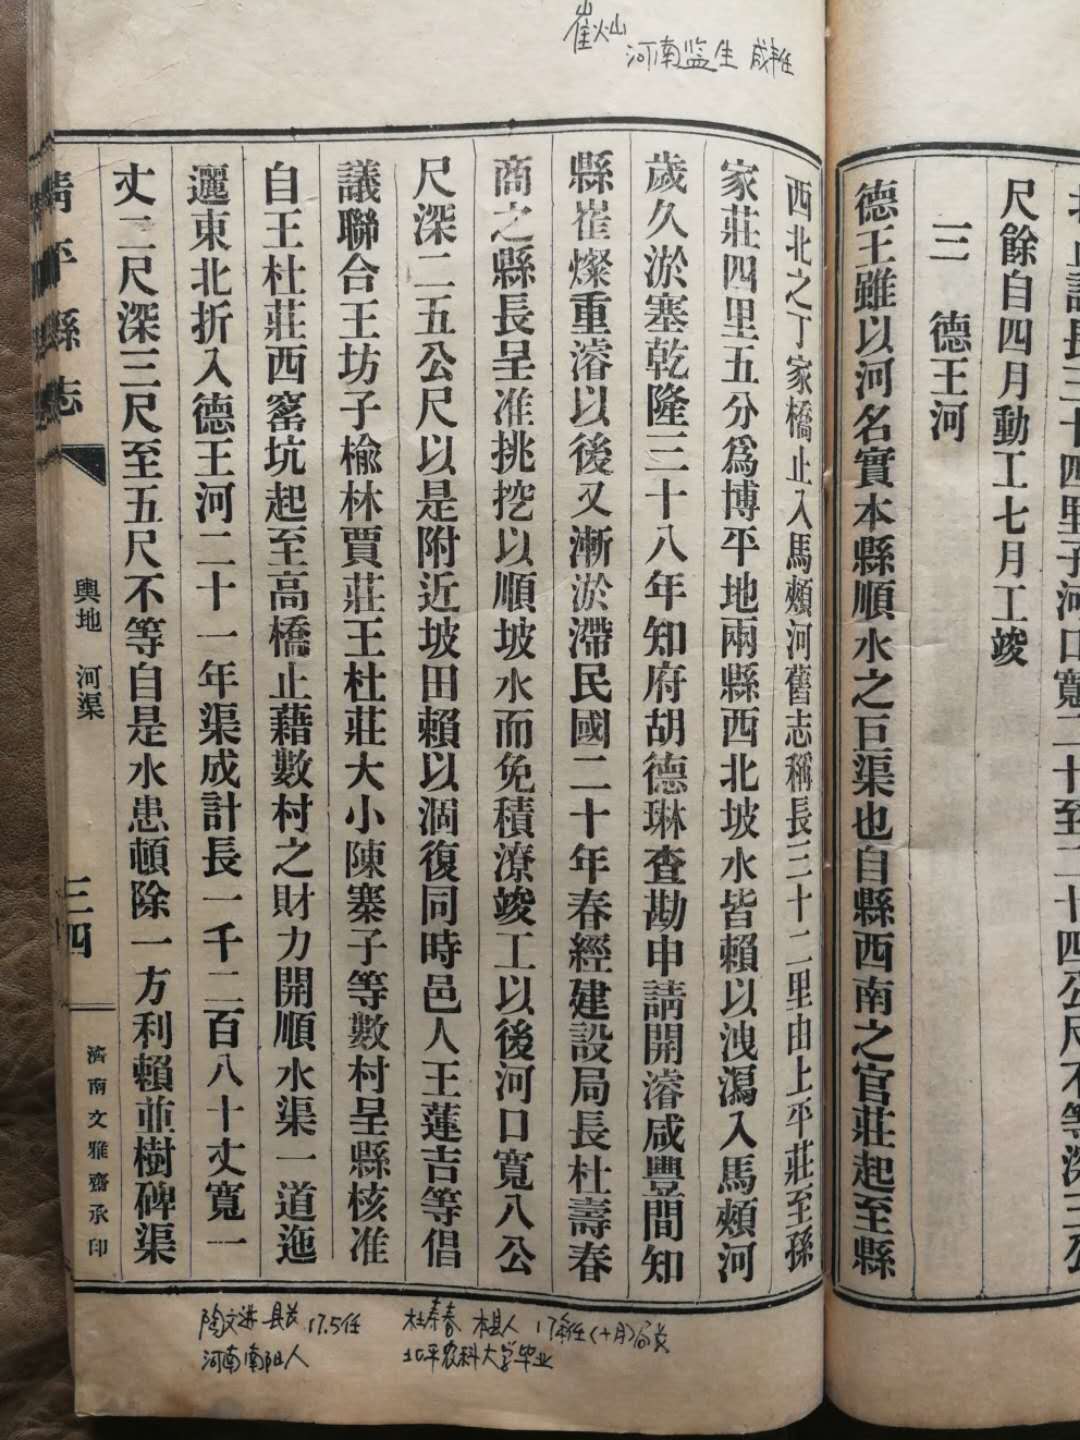 崔灿
河南监生 咸丰任
尺餘自四月動工七月工竣
三 德王河
德王雖以河名實本縣順水之巨渠也自縣西南之官莊起至縣
西北之丁家橋止入馬頰河舊志稱長三十二里由上平莊至孫
家莊四里五分爲博平地兩縣西北坡水皆賴以洩瀉入馬頰河
歲久淤塞乾隆三十八年知府胡德琳查勘申請開濬咸豐間知
縣崔燦重濬以後又漸淤滯民國二十年春經建設局長杜壽春
商之縣長呈准挑挖以順坡水而免積潦竣工以後河口寬八公
尺深二五公尺以是附近坡田賴以涸復同時邑人王蓮吉等倡
議聯合王坊子榆林賈莊王杜莊大小陳寨子等數村呈縣核准
自王杜莊西窰坑起至高橋止藉數村之財力開順水渠一道迤
邐東北折入德王河二十一年渠成計長一千二百八十丈寬一
丈二尺深三尺至五尺不等自是水患頓除一方利賴並樹碑渠
清平縣志
輿地 河渠
三四
濟南文雅齋承印
杜寿春 本县人 17年任(十月)局长
北平农科大学毕业
县长 17.5任
河南南阳人